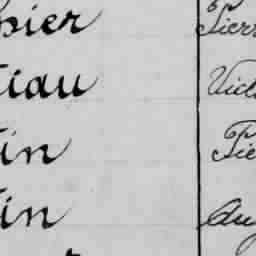 pier Pierr
tiau Vict
tin Pie
tin Aug